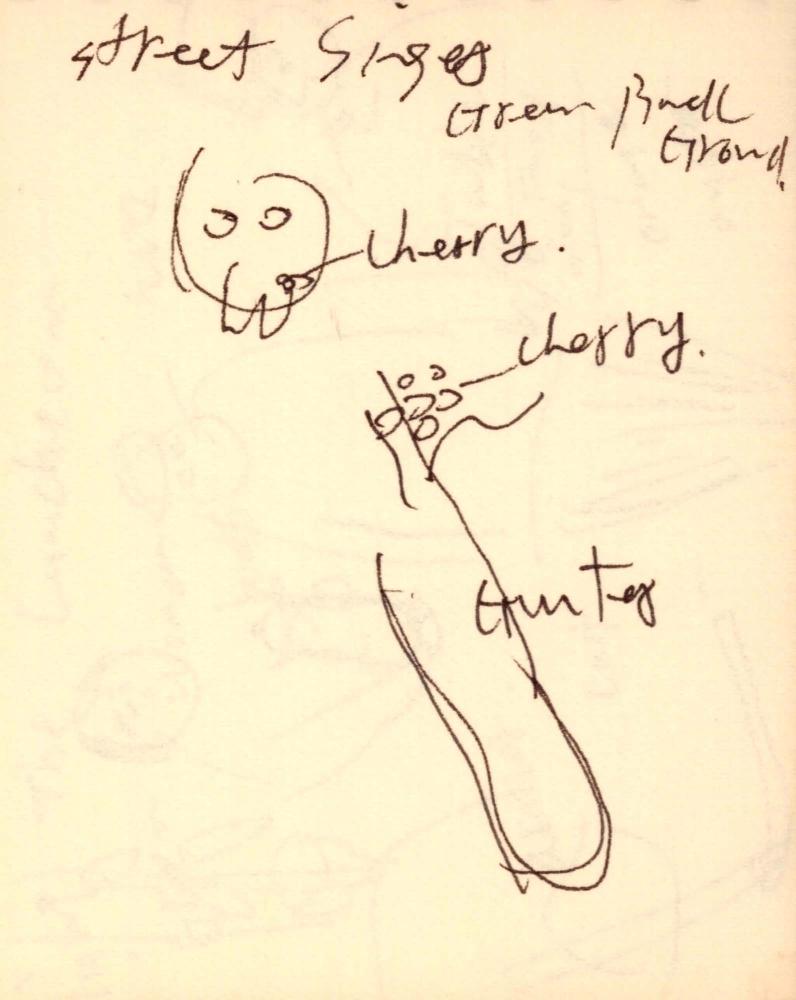 street Singer
Green Back
Ground
cherry.
cherry.